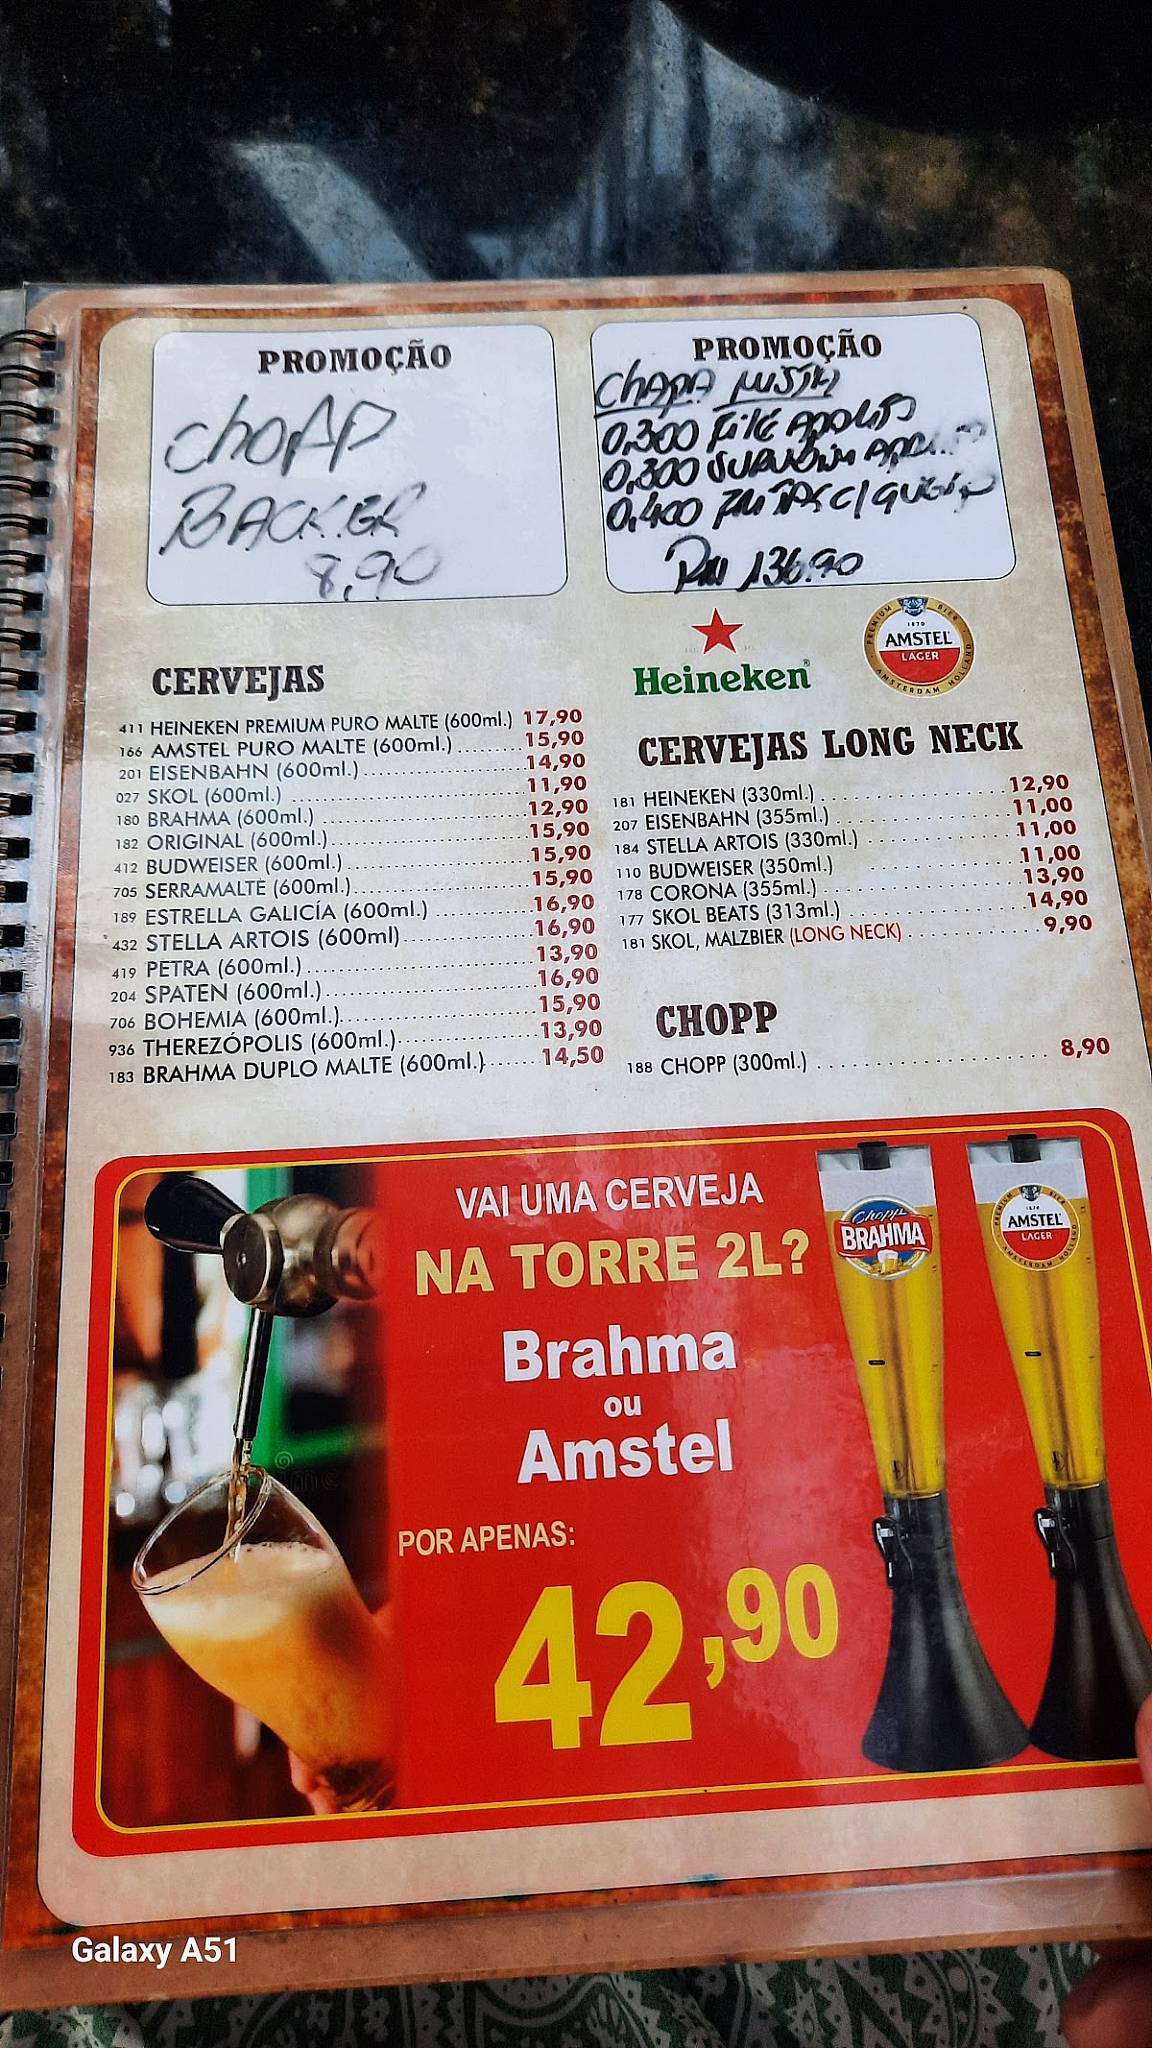 PROMOÇÃO
Chopp
BACKER
8,90
PROMOÇÃO
Chapa MISTA
0,300 Filé APERITO
0,300 SURUBIM
0,400 C/ QUEIJO
136.90
Heineken
PREMIUM BIER
1870
AMSTEL
LAGER
AMSTERDAM HOLLAND
CERVEJAS
411 HEINEKEN PREMIUM PURO MALTE (600ml.) 17,90
166 AMSTEL PURO MALTE (600ml.) ......... 15,90
201 EISENBAHN (600ml.) ........................ 14,90
027 SKOL (600ml.) ................................... 11,90
180 BRAHMA (600ml.) ............................... 12,90
182 ORIGINAL (600ml.) ............................. 15,90
412 BUDWEISER (600ml.) ........................... 15,90
705 SERRAMALTE (600ml.) .......................... 15,90
189 ESTRELLA GALICÍA (600ml.) .............. 16,90
432 STELLA ARTOIS (600ml) ................... 16,90
419 PETRA (600ml.) ................................. 13,90
204 SPATEN (600ml.) .............................. 16,90
706 BOHEMIA (600ml.) ............................ 15,90
936 THEREZÓPOLIS (600ml.) .................... 13,90
183 BRAHMA DUPLO MALTE (600ml.) ...... 14,50
CERVEJAS LONG NECK
181 HEINEKEN (330ml.) .................... 12,90
207 EISENBAHN (355ml.) .................. 11,00
184 STELLA ARTOIS (330ml.) .............. 11,00
110 BUDWEISER (350ml.) .................. 11,00
178 CORONA (355ml.) ...................... 13,90
177 SKOL BEATS (313ml.) .................. 14,90
181 SKOL, MALZBIER (LONG NECK) .......... 9,90
CHOPP
188 CHOPP (300ml.) ........................ 8,90
VAI UMA CERVEJA
NA TORRE 2L?
Brahma
ou
Amstel
POR APENAS:
42,90
Chopp
BRAHMA
PREMIUM BIER
1870
AMSTEL
LAGER
AMSTERDAM HOLLAND
Galaxy A51